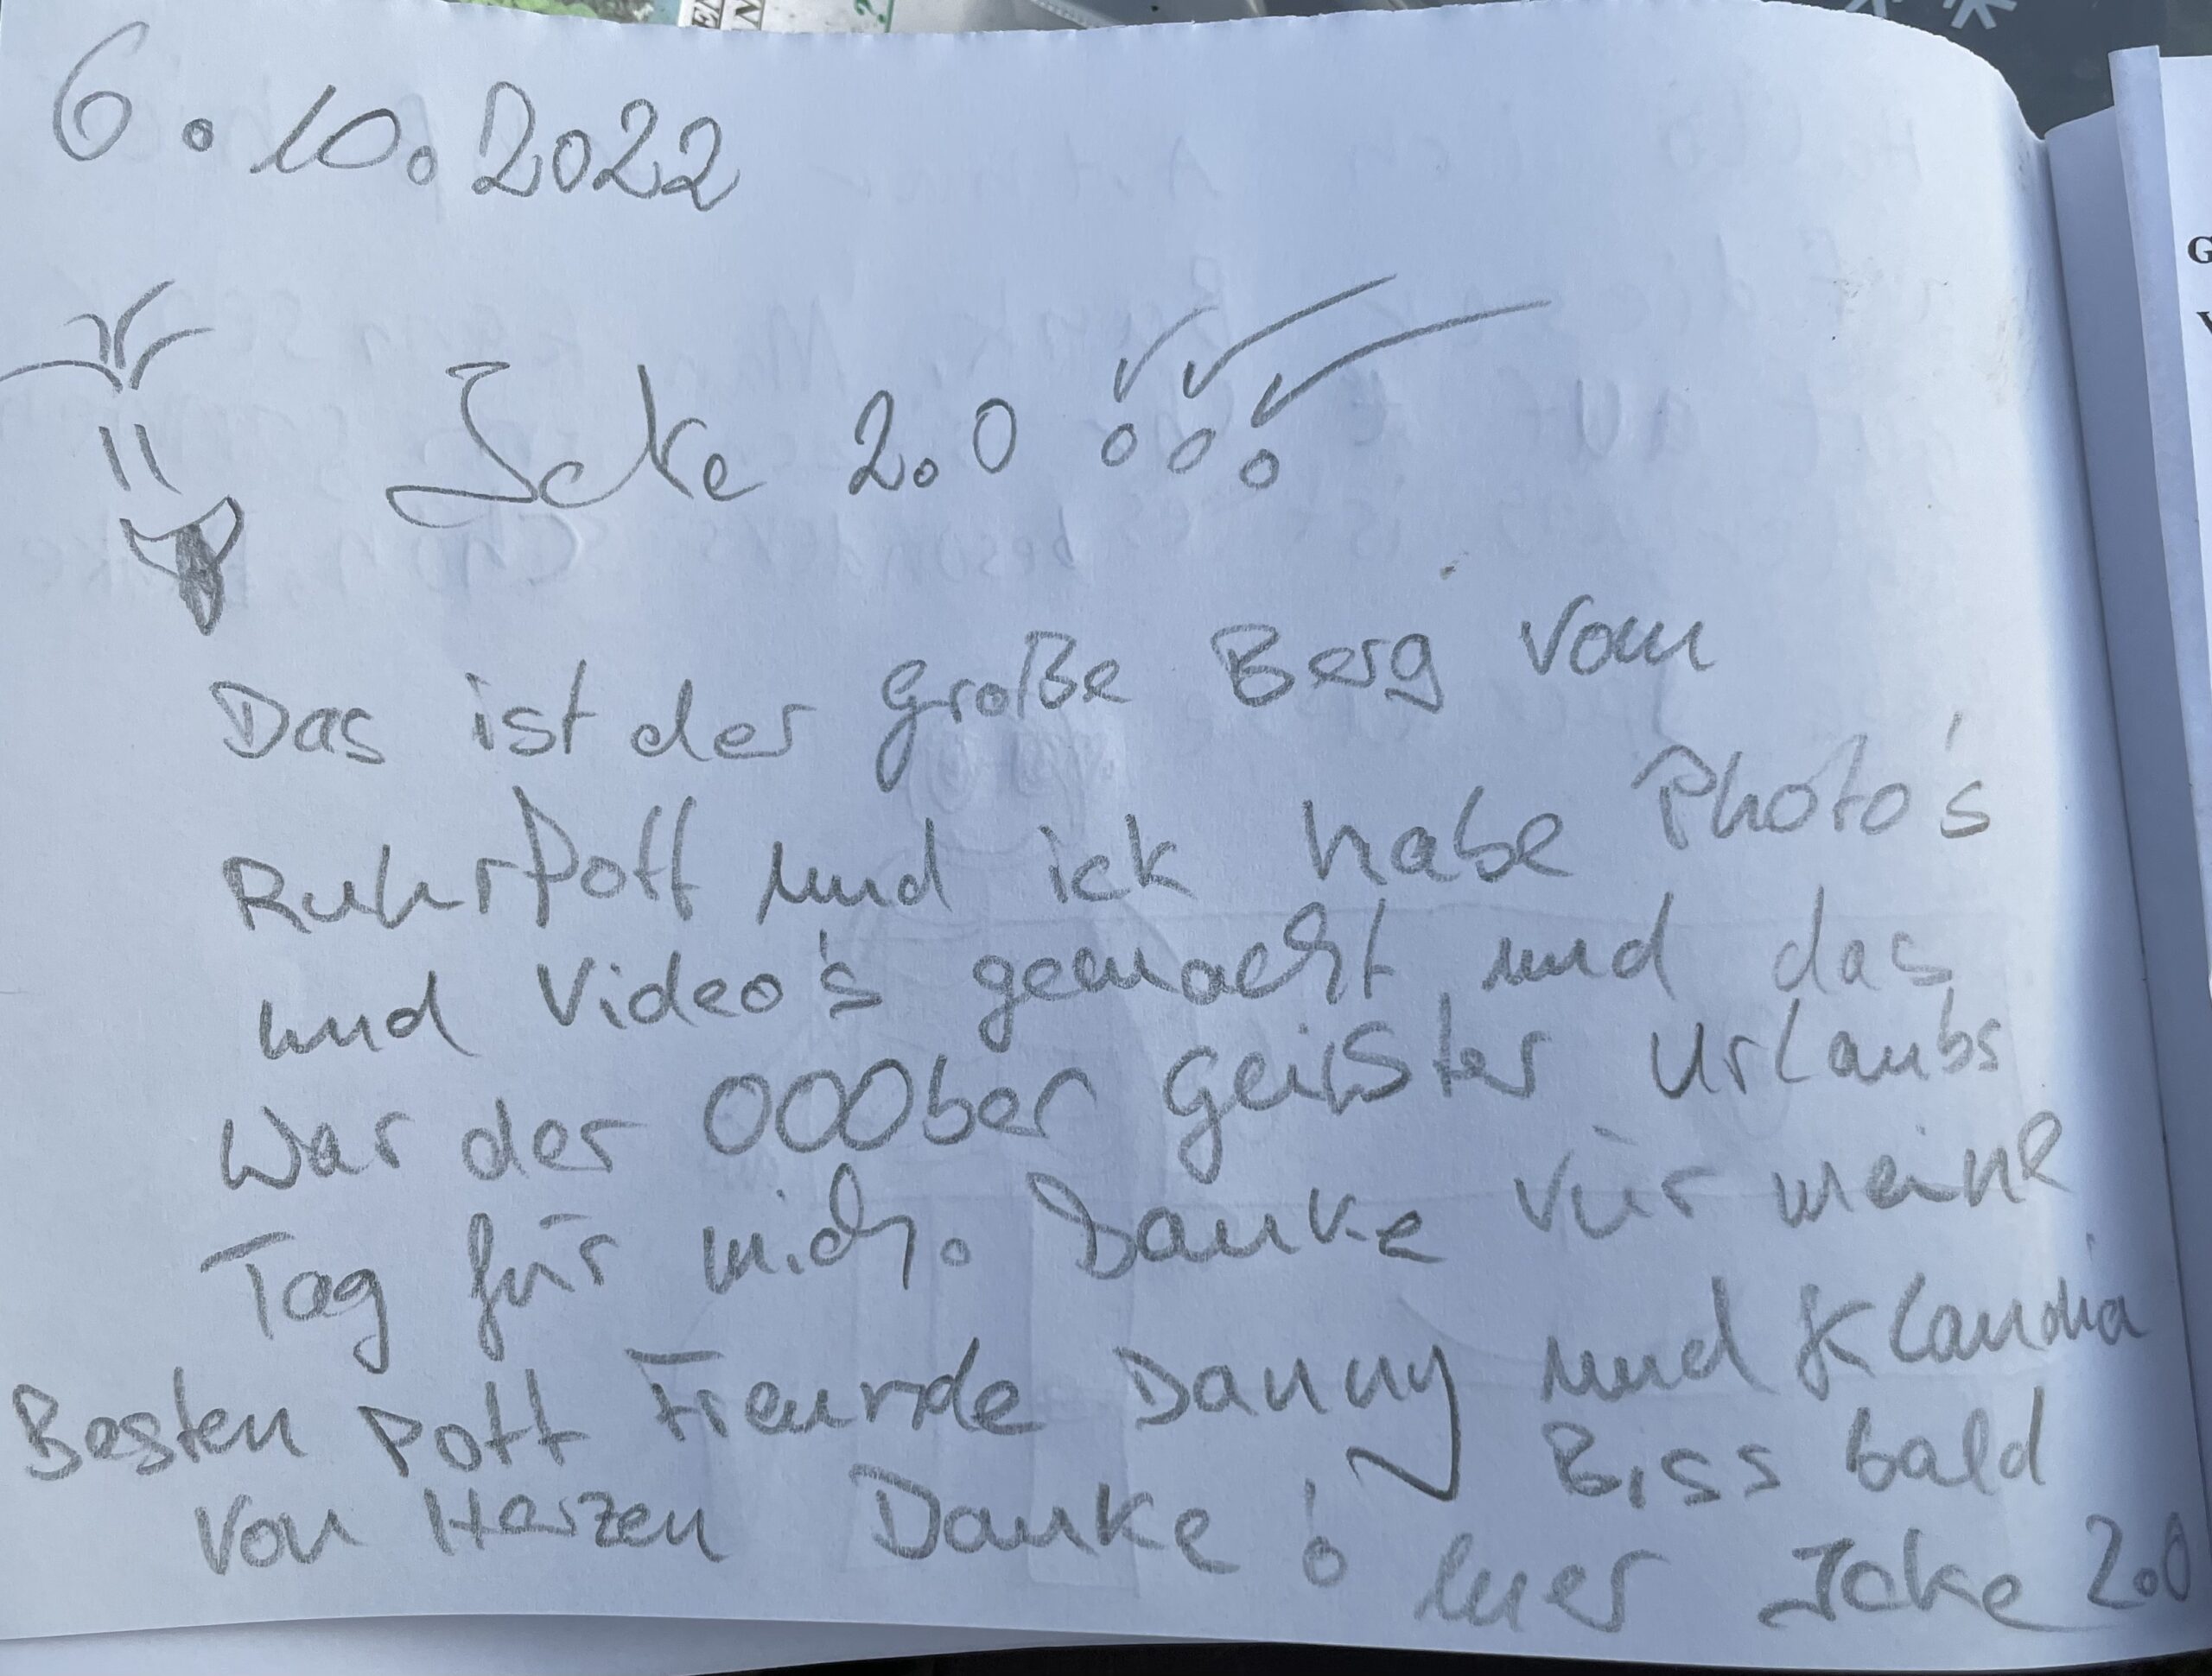 6.10.2022
Icke 2.0 !!!
Das ist der große Berg vom
RuhrPott und ick habe Photo's
und Video's gemacht und das
War der OOOber geißster Urlaubs
Tag für mich. Danke vür meine
Besten Pott Freunde Danny und Klaudia
Von Herzen Danke! Biss bald
euer Icke 2.0